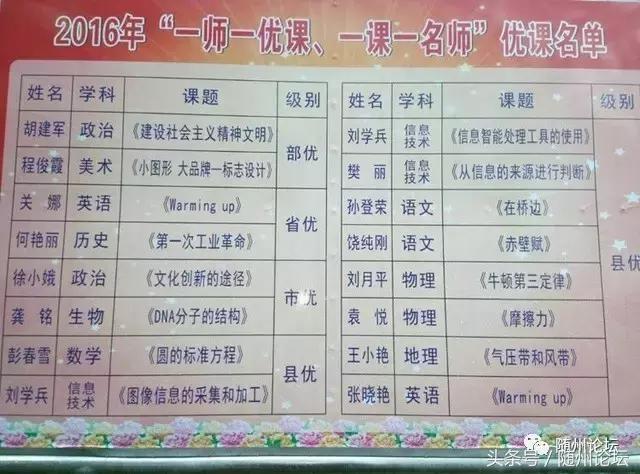 2016年“一师一优课、一课一名师”优课名单
姓名 学科 课题 级别
胡建军 政治 《建设社会主义精神文明》 部优
程俊霞 美术 《小图形 大品牌—标志设计》
关娜 英语 《Warming up》 省优
何艳丽 历史 《第一次工业革命》
徐小娥 政治 《文化创新的途径》 市优
龚铭 生物 《DNA分子的结构》
彭春雪 数学 《圆的标准方程》 县优
刘学兵 信息技术 《图像信息的采集和加工》
姓名 学科 课题 级别
刘学兵 信息技术 《信息智能处理工具的使用》 县优
樊丽 信息技术 《从信息的来源进行判断》
孙登荣 语文 《在桥边》
饶纯刚 语文 《赤壁赋》
刘月平 物理 《牛顿第三定律》
袁悦 物理 《摩擦力》
王小艳 地理 《气压带和风带》
张晓艳 英语 《Warming up》
随州论坛
头条号/随州论坛